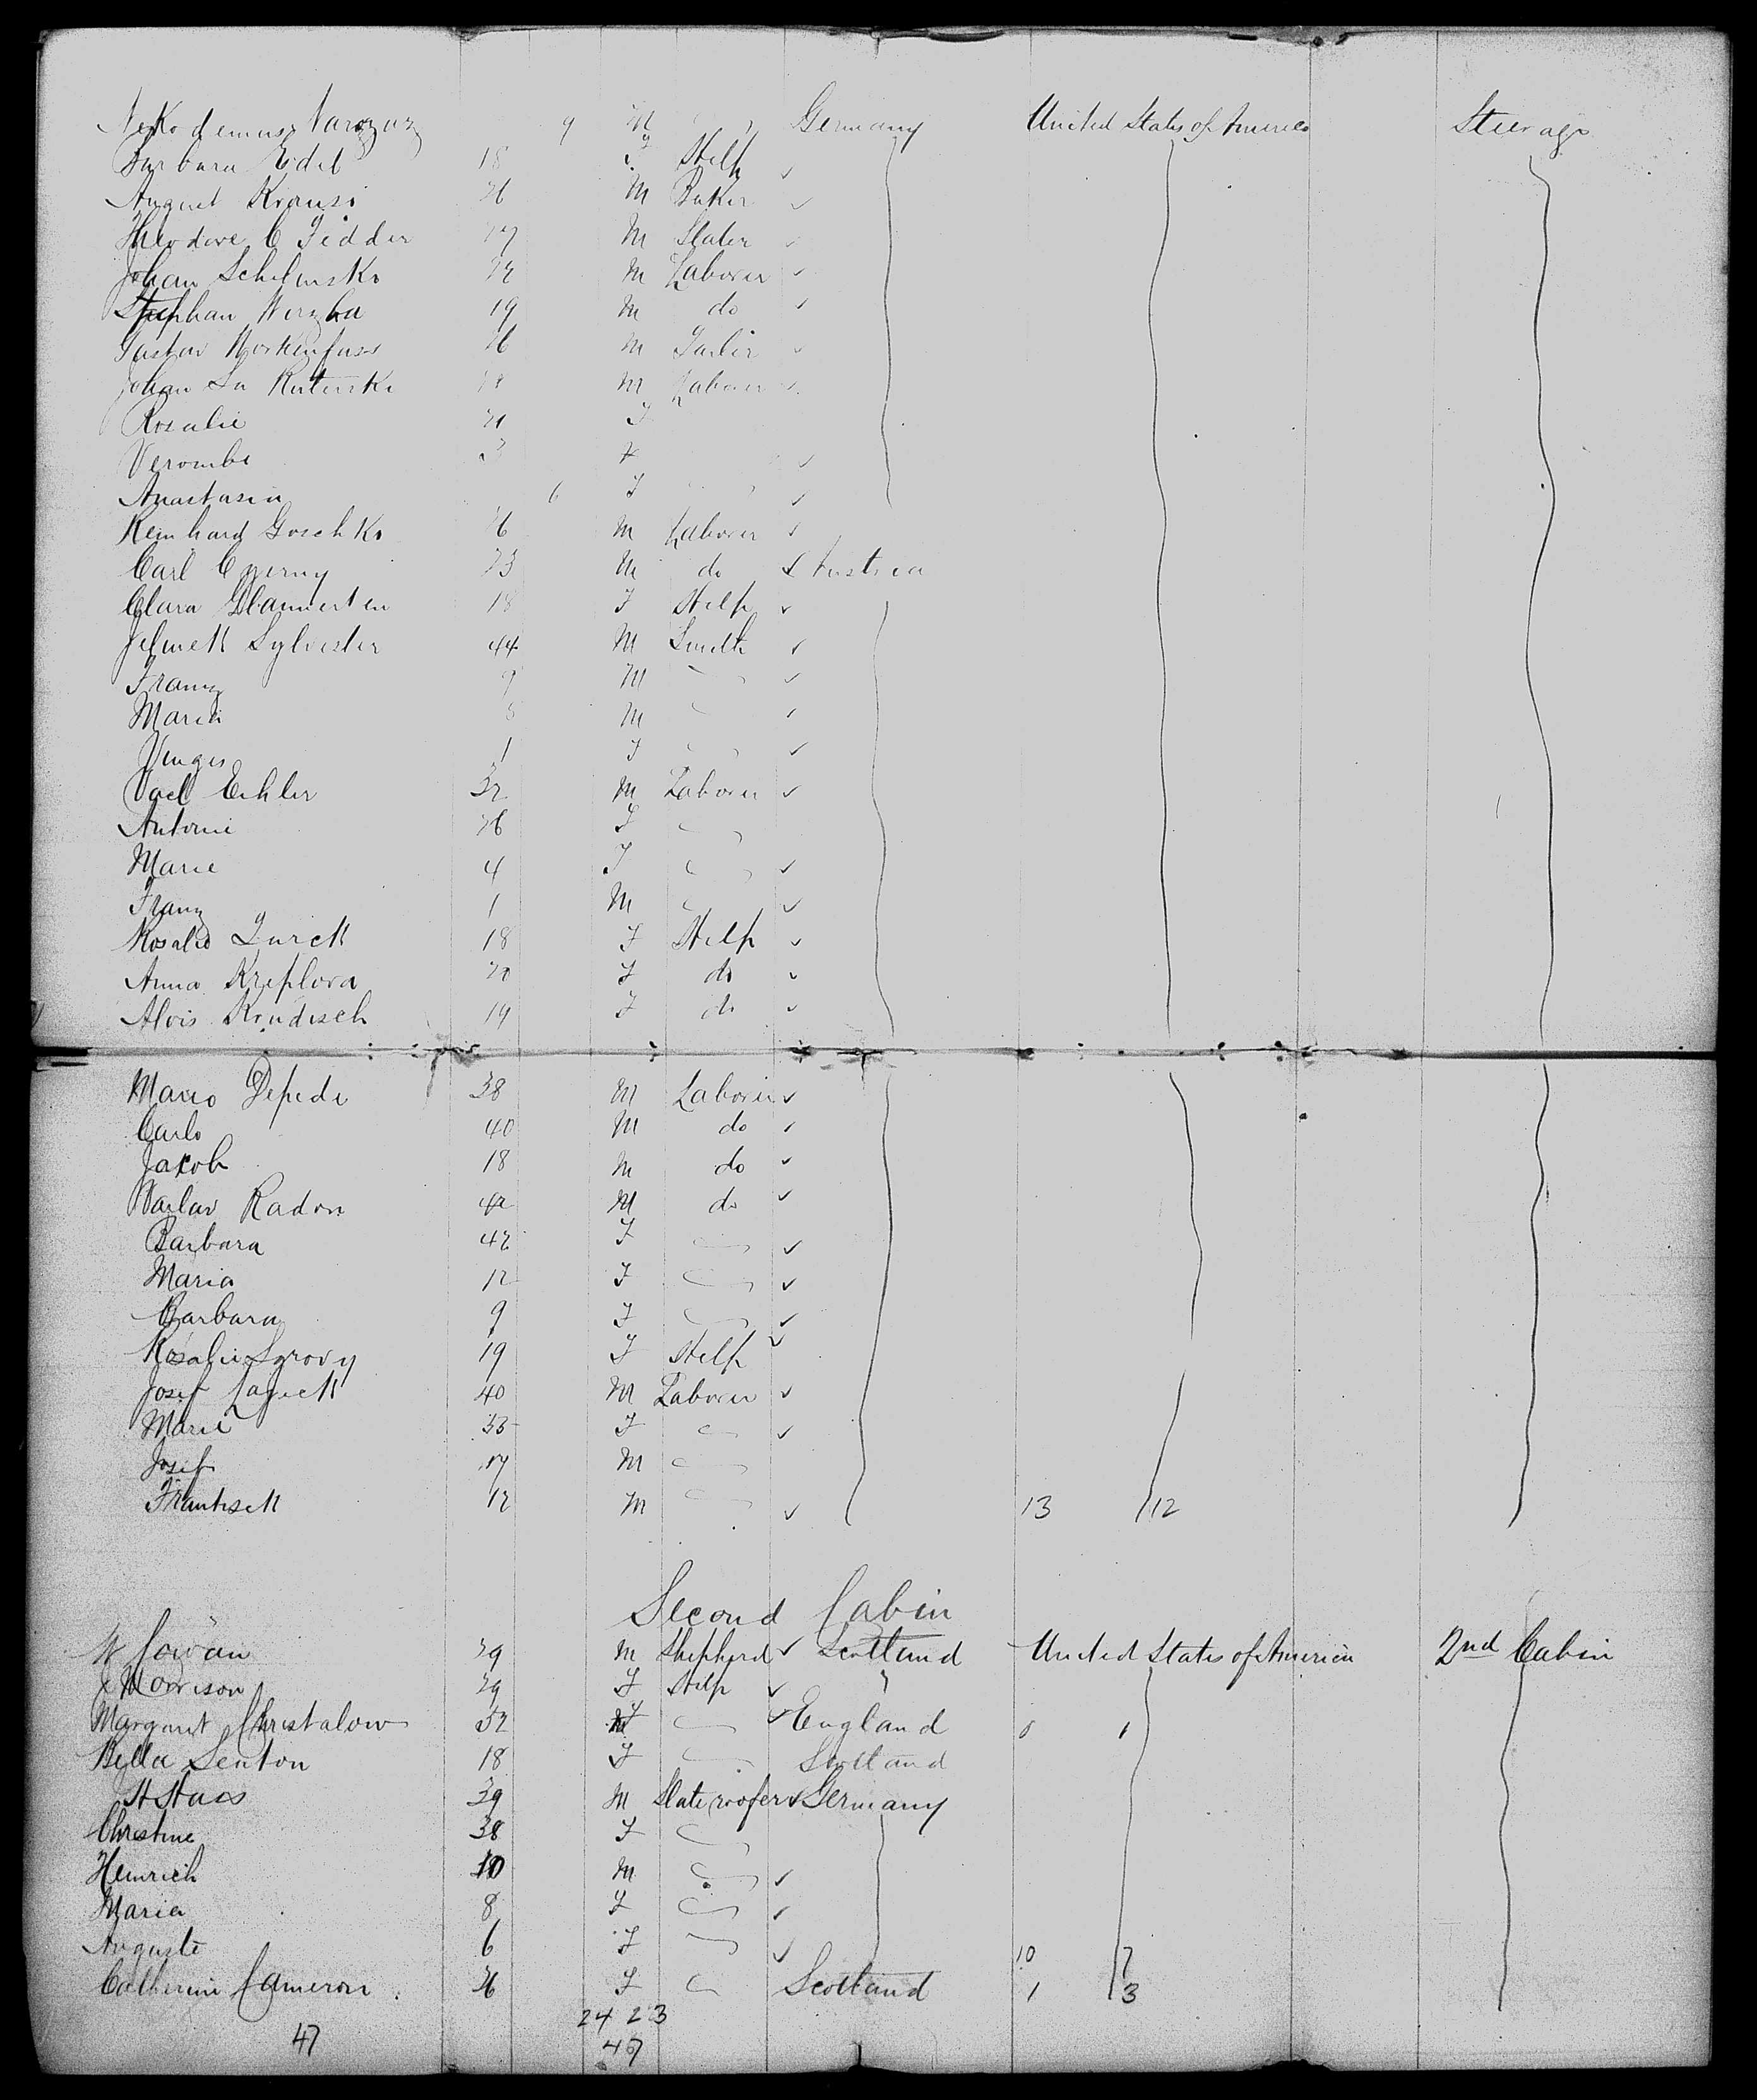 Nekodemus Varozuz 9 M Germany United States of America Steerage
Barbara Edel 18 F Help
August Krause 26 M Baker
Theodore C Fedder 27 M Slater
Johan Schelinski 24 M Laborer
Stephan Wirzba 19 M do
Gustav Workenfuss 26 M Tailor
Johan La Rutenski 28 M Laborer
Rosalie 21 F
Verombe 3 F
Anastasia 6 F
Reinhard Goschko 26 M Laborer
Carl Czerny 23 M do Austria
Clara 18 F Help
Jelinek Sylvester 44 M Smith
Franz 9 M
Maria 8 M
Vinges 1 F
Vacl Eichler 32 M Laborer
Antonie 26 F
Marie 4 F
Franz 1 M
Rosalie Turek 18 F Help
Anna Kreplova 20 F do
Alois Krudisch 19 F do
Mario Depede 38 M Laborer
Carlo 40 M do
Jakob 18 M do
Vaclav Radon 42 M do
Barbara 42 F
Maria 12 F
Barbara 9 F
Rosalie Syrovy 19 F Help
Josef 40 M Laborer
Marie 35 F
Josef 17 M
Frantisek 12 M 13 12
Second Cabin
W Cowan 29 M Shepherd Scotland United States of America 2nd Cabin
J Morrison 29 F Help "
Margaret Christalow 32 F England 8 1
Bella Senton 18 F Scotland
H Haas 39 M Slate roofer Germany
Christine 38 F
Heinrich 10 M
Maria 8 F
Auguste 6 F 10 7
Catherine Cameron 26 F Scotland 1 3
24 23
47 47